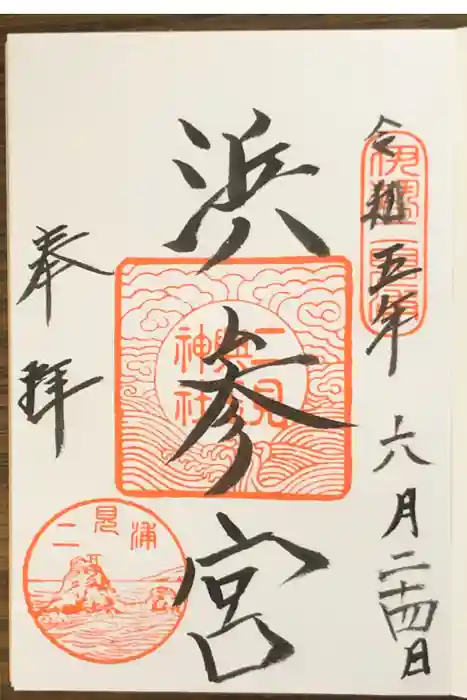 令和五年六月二十四日
伊勢二見浦
浜参宮
二見興玉神社
奉拝
二見浦